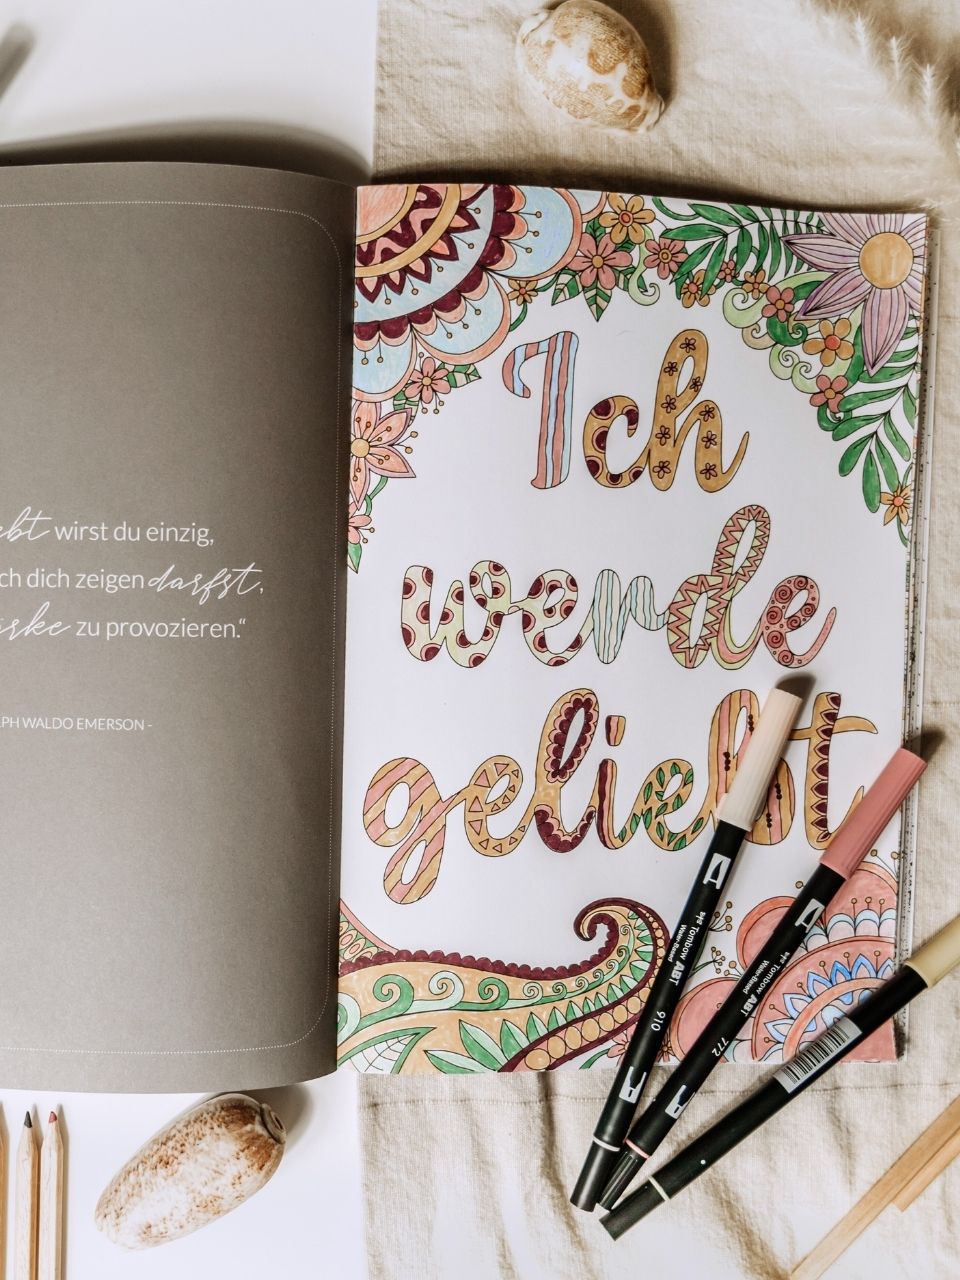 wirst du einzig,
dich zeigen darfst,
zu provozieren.“
WALDO EMERSON -
Ich
werde
geliebt
Tombow ABT
Water-Based
910
Tombow ABT
Water-Based
772